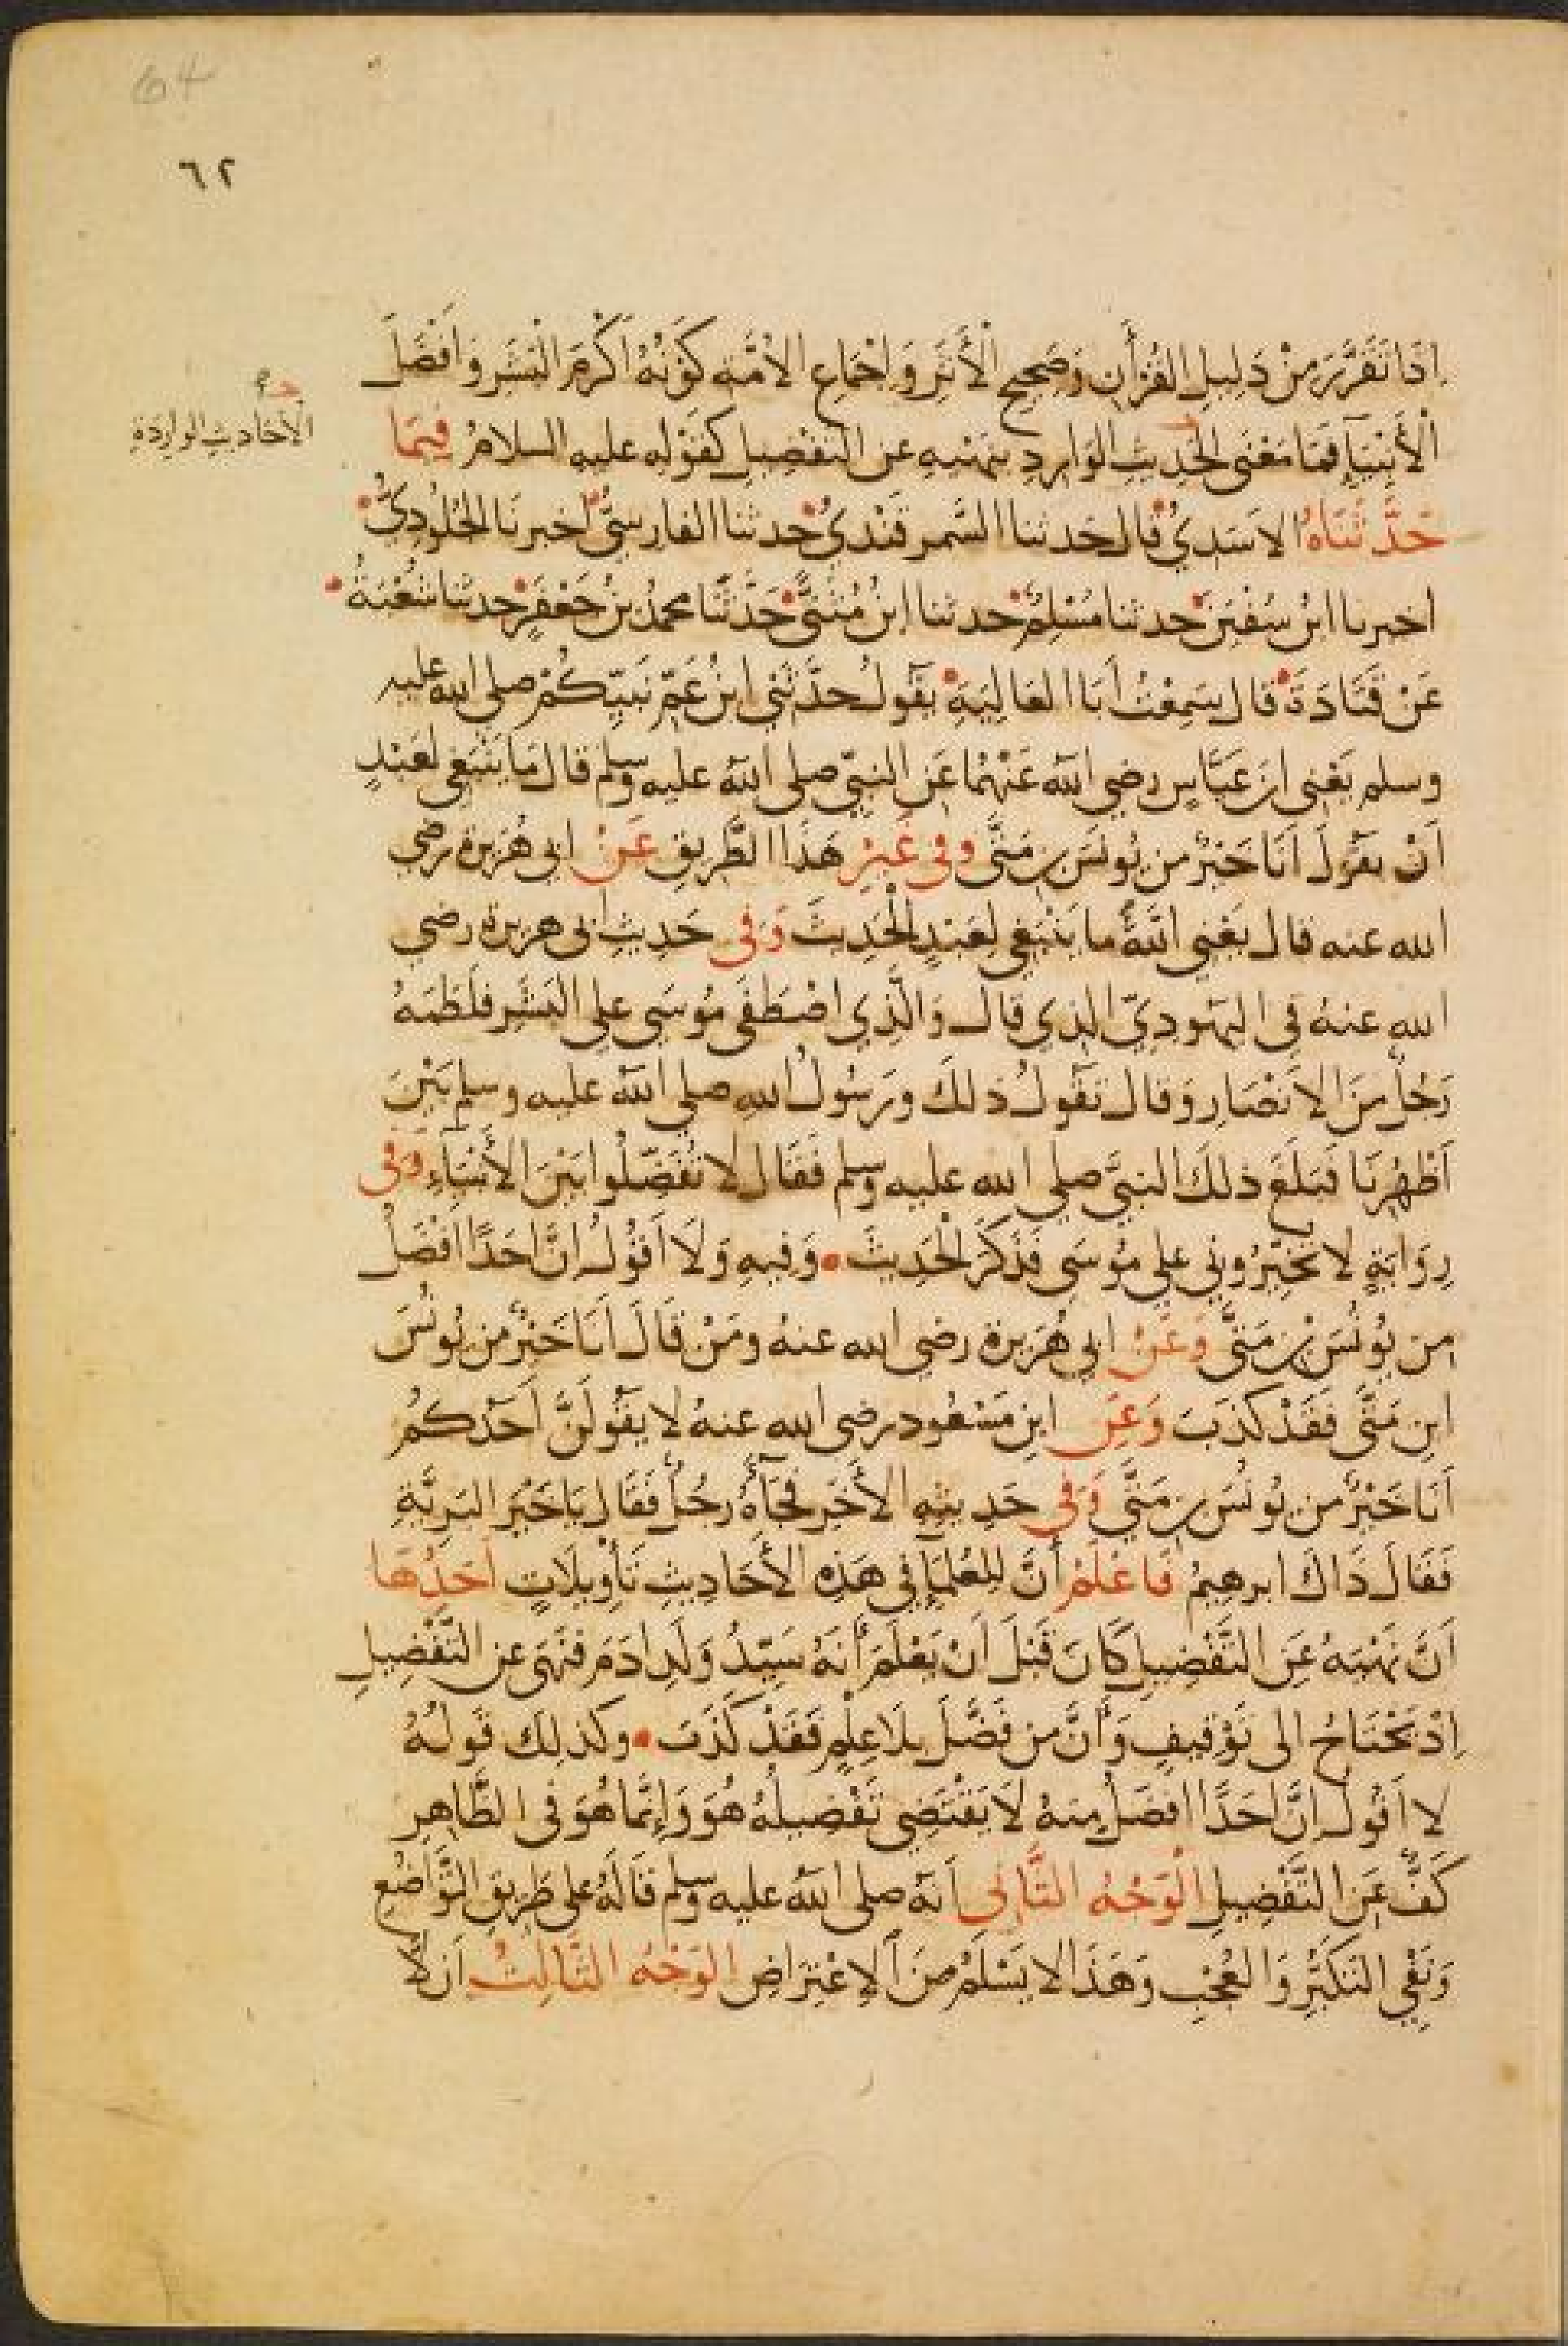 64
٦٢
اِذَا تَقَرَّرَ مِنْ دَلِيلِ القُرْأٰنِ وَصَحِيحِ الْأَثَرِ وَاِجْمَاعِ الاُمَّةِ كَوْنُهُ اَكْرَمَ الْبَشَرِ وَاَفْضَلَ
الْأَنْبِيَآءِ فَمَا مَعْنَى الْحَدِيثِ الْوَارِدِ بِنَهْيِهِ عن التَّفْضِيلِ كَقَوْلِه عليه السلامُ فِيمَا
الْأَحَادِيثِ الوارِدَةِ
حَدَّثَنَاهُ الاَسَدِيُّ قال حَدثنا السَّمرقَنْدِيُّ حدثنا الفارِسِيُّ اخبرنَا الجُلُودِيُّ
اخبرنا ابْنُ سُفْيٰنَ حدثنا مُسْلِمٌ حدثنا ابْنُ مُثَنَّى حَدَّثَنَا محمدُ بنُ جَعْفَرٍ حدثنا شُعْبَةُ
عَنْ قَتَادَةَ قال سَمِعْتُ اَبَا العَالِيَةِ يَقُولُ حدَّثَنِي ابْنُ عَمِّ نَبِيِّكُمْ صلى الله عليه
وسلم يَعْنِى ابنَ عَبَّاسٍ رضي الله عَنْهُمَا عَنِ النبيّ صلى الله عليه وسلم قال مَا يَنْبَغِي لِعَبْدٍ
اَنْ يَقُولَ اَنَا خَيْرٌ من يُونُسَ بنِ مَتَّى وفي غَيْرِ هَذَا الطَّرِيقِ عَنْ ابي هُرَيرة رضي
الله عنه قال يَعْنِي اللهُ ما يَنْبَغِي لِعَبْدٍ الْحَدِيثَ وَفى حَدِيثِ ابي هريرة رضي
الله عنهُ فِي اليَهُودِيِّ الذي قال وَالَّذِي اصْطَفَى مُوسَى على البَشَرِ فَلَطَمَهُ
رَجُلٌ مِنَ الاَنْصَارِ وَقال تَقُولُ ذلكَ وَرَسُولُ اللهِ صلى الله عليه وسلم بَيْنَ
اَظْهُرِنَا فَبَلَغَ ذلكَ النبيَّ صلى الله عليه وسلم فَقَال لا تُفَضِّلُوا بَيْنَ الأَنْبِيَآءِ وَفى
رِوَايَةٍ لا تُخَيِّرُونِي على مُوسَى فَذَكَرَ الْحَدِيثَ وَفيهِ وَلَا اَقُولُ اِنَّ اَحَدًا اَفْضَلُ
من يُونُسَ بْنِ مَتَّى وَعَنْ ابي هُرَيرة رضي الله عنهُ ومَنْ قَالَ اَنَا خَيْرٌ من يُونُسَ
ابنِ مَتَّى فَقَدْ كَذَبَ وَعَنِ ابنِ مَسْعُود رضي الله عنهُ لا يَقُولَنَّ اَحَدُكُمْ
اَنَا خَيْرٌ من يُونُسَ بنِ مَتَّى وَفى حَدِيثِهِ الأَخَرِ فَجَآءَهُ رَجُلٌ فَقَال يَا خَيْرَ البَرِيَّةِ
فَقَالَ ذَاكَ ابرهيمُ فَاعْلَمْ أَنَّ لِلعُلَمَآءِ فِي هَذِهِ الأَحَادِيثِ تَأْوِيلَاتٍ اَحَدُهَا
اَنَّ نَهْيَهُ عَنِ التَّفْضِيلِ كَانَ قَبْلَ اَنْ يَعْلَمَ أَنَّهُ سَيِّدُ وَلَدِ ادَمَ فنَهَى عن التَّفْضِيلِ
اِذْ يَحْتَاجُ الى تَوْقيفٍ وَأَنَّ من فَضَّلَ بِلَا عِلْمٍ فَقَدْ كَذَبَ وكذلكَ قَولُهُ
لا اَقُولُ اِنَّ اَحَدًا اَفْضَلُ مِنهُ لَا يَقْتَضِي تَفْضِيلَهُ هُوَ وَاِنَّمَا هُوَ فى الظَّاهِرِ
كَفٌّ عَنِ التَّفْضِيلِ الْوَجْهُ الثَّانِي اَنّه صلى الله عليه وسلم قَالَهُ على طَرِيقِ التَّوَاضُعِ
وَنَفْيِ التَّكَبُّرِ وَالعُجْبِ وَهَذَا لا يَسْلَمُ مِنَ الِاعْتِرَاضِ الوَجْهُ الثَّالِثُ اَن لَا